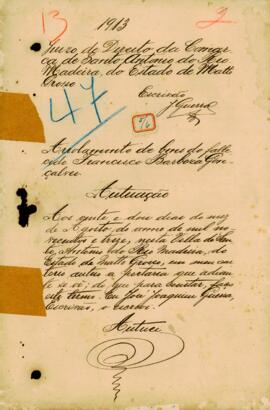 13
2
1913
Juizo de Direito da Comar-
ca de Santo Antonio do Rio
Madeira, do Estado de Matto
Grosso
Escrivão
J Guerra
47
Arrolamento de bens do falle-
cido Francisco Barboza Gon-
çalves
Autuação
Aos vinte e dous dias do mez
de Agosto, do anno de mil no-
vecentos e treze, nesta Villa de San-
to Antonio do Rio Madeira, do
Estado de Matto Grosso, em meu car-
torio autuo a portaria que adian-
te se vê; do que para constar, faço
este termo. Eu José Joaquim Guerra,
Escrivão, o escrevi.
Autuei